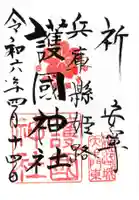 祈
兵庫縣姫路
護國神社
令和六年四月十四日